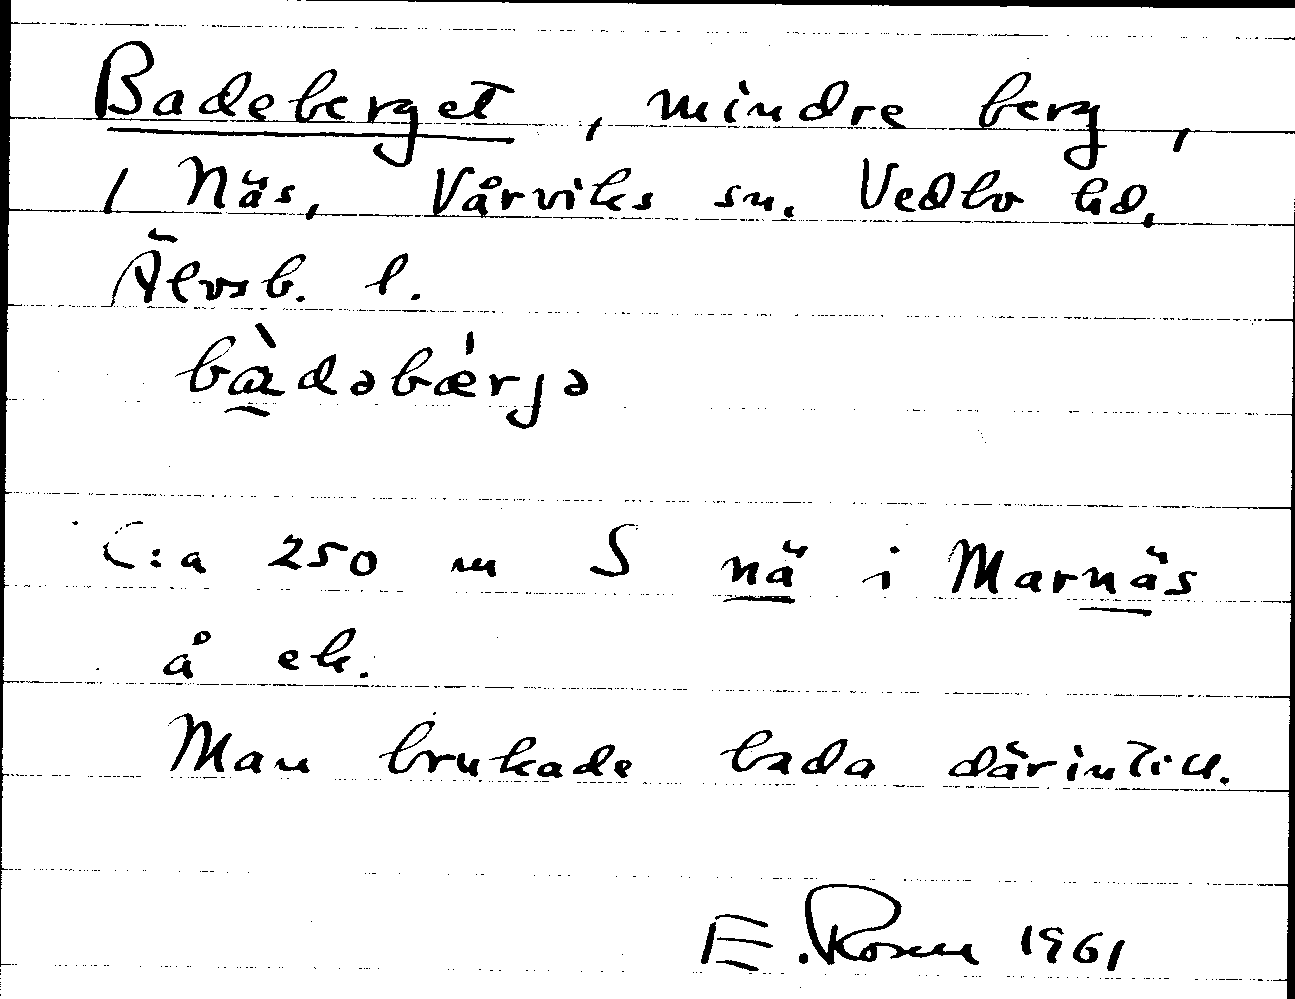 Badeberget, mindre berg,
/ Näs, Vårviks sn. Vedbo hd.
Älvsb. l.
bàdəbæ'rjə
C:a 250 m S nä i Marnäs
å ek.
Man brukade bada därintill.
E. Rosen 1961